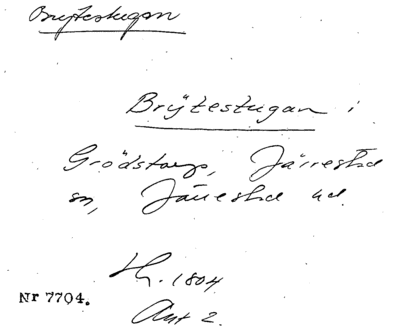 Brÿtestugan
Brÿtestugan i
Grödstorp, Järrestad
sn, Järrestad hd.
H. 1804
Nr 7704.
Ant 2.